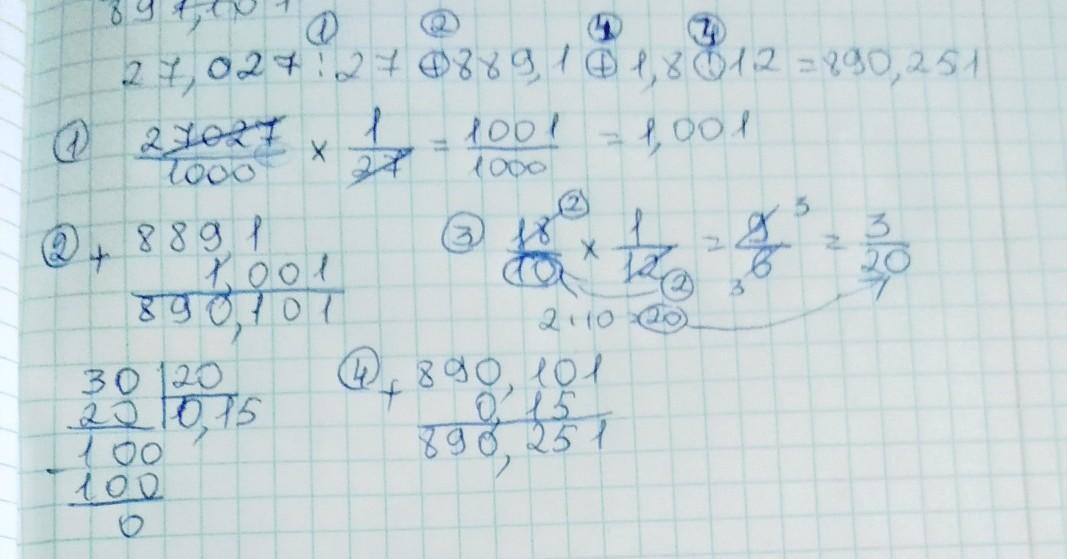 891,101
① ② ④ 3
27,027 : 27 + 889,1 + 1,8 : 12 = 890,251
① 27027/1000 × 1/27 = 1001/1000 = 1,001
② + 889,1
1,001
890,101
③ 18/10 ② × 1/12 ② = 9/6 3 3 = 3/20
2·10 = 20
30 | 20
20 | 0,15
- 100
100
0
④ + 890,101
0,15
890,251